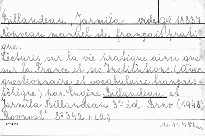 Billandeau, Jarmila
Nouveau manuel de français pratique.
Lectures sur la vie pratique ainsi que
sur la France et ses Institutions. (Avec
questionnaire et vocabulaire français-
tchèque) par Eugène Billandeau et
Jarmila Billandeau. 3e éd. Brno (1948)
Rovnost 8° 342